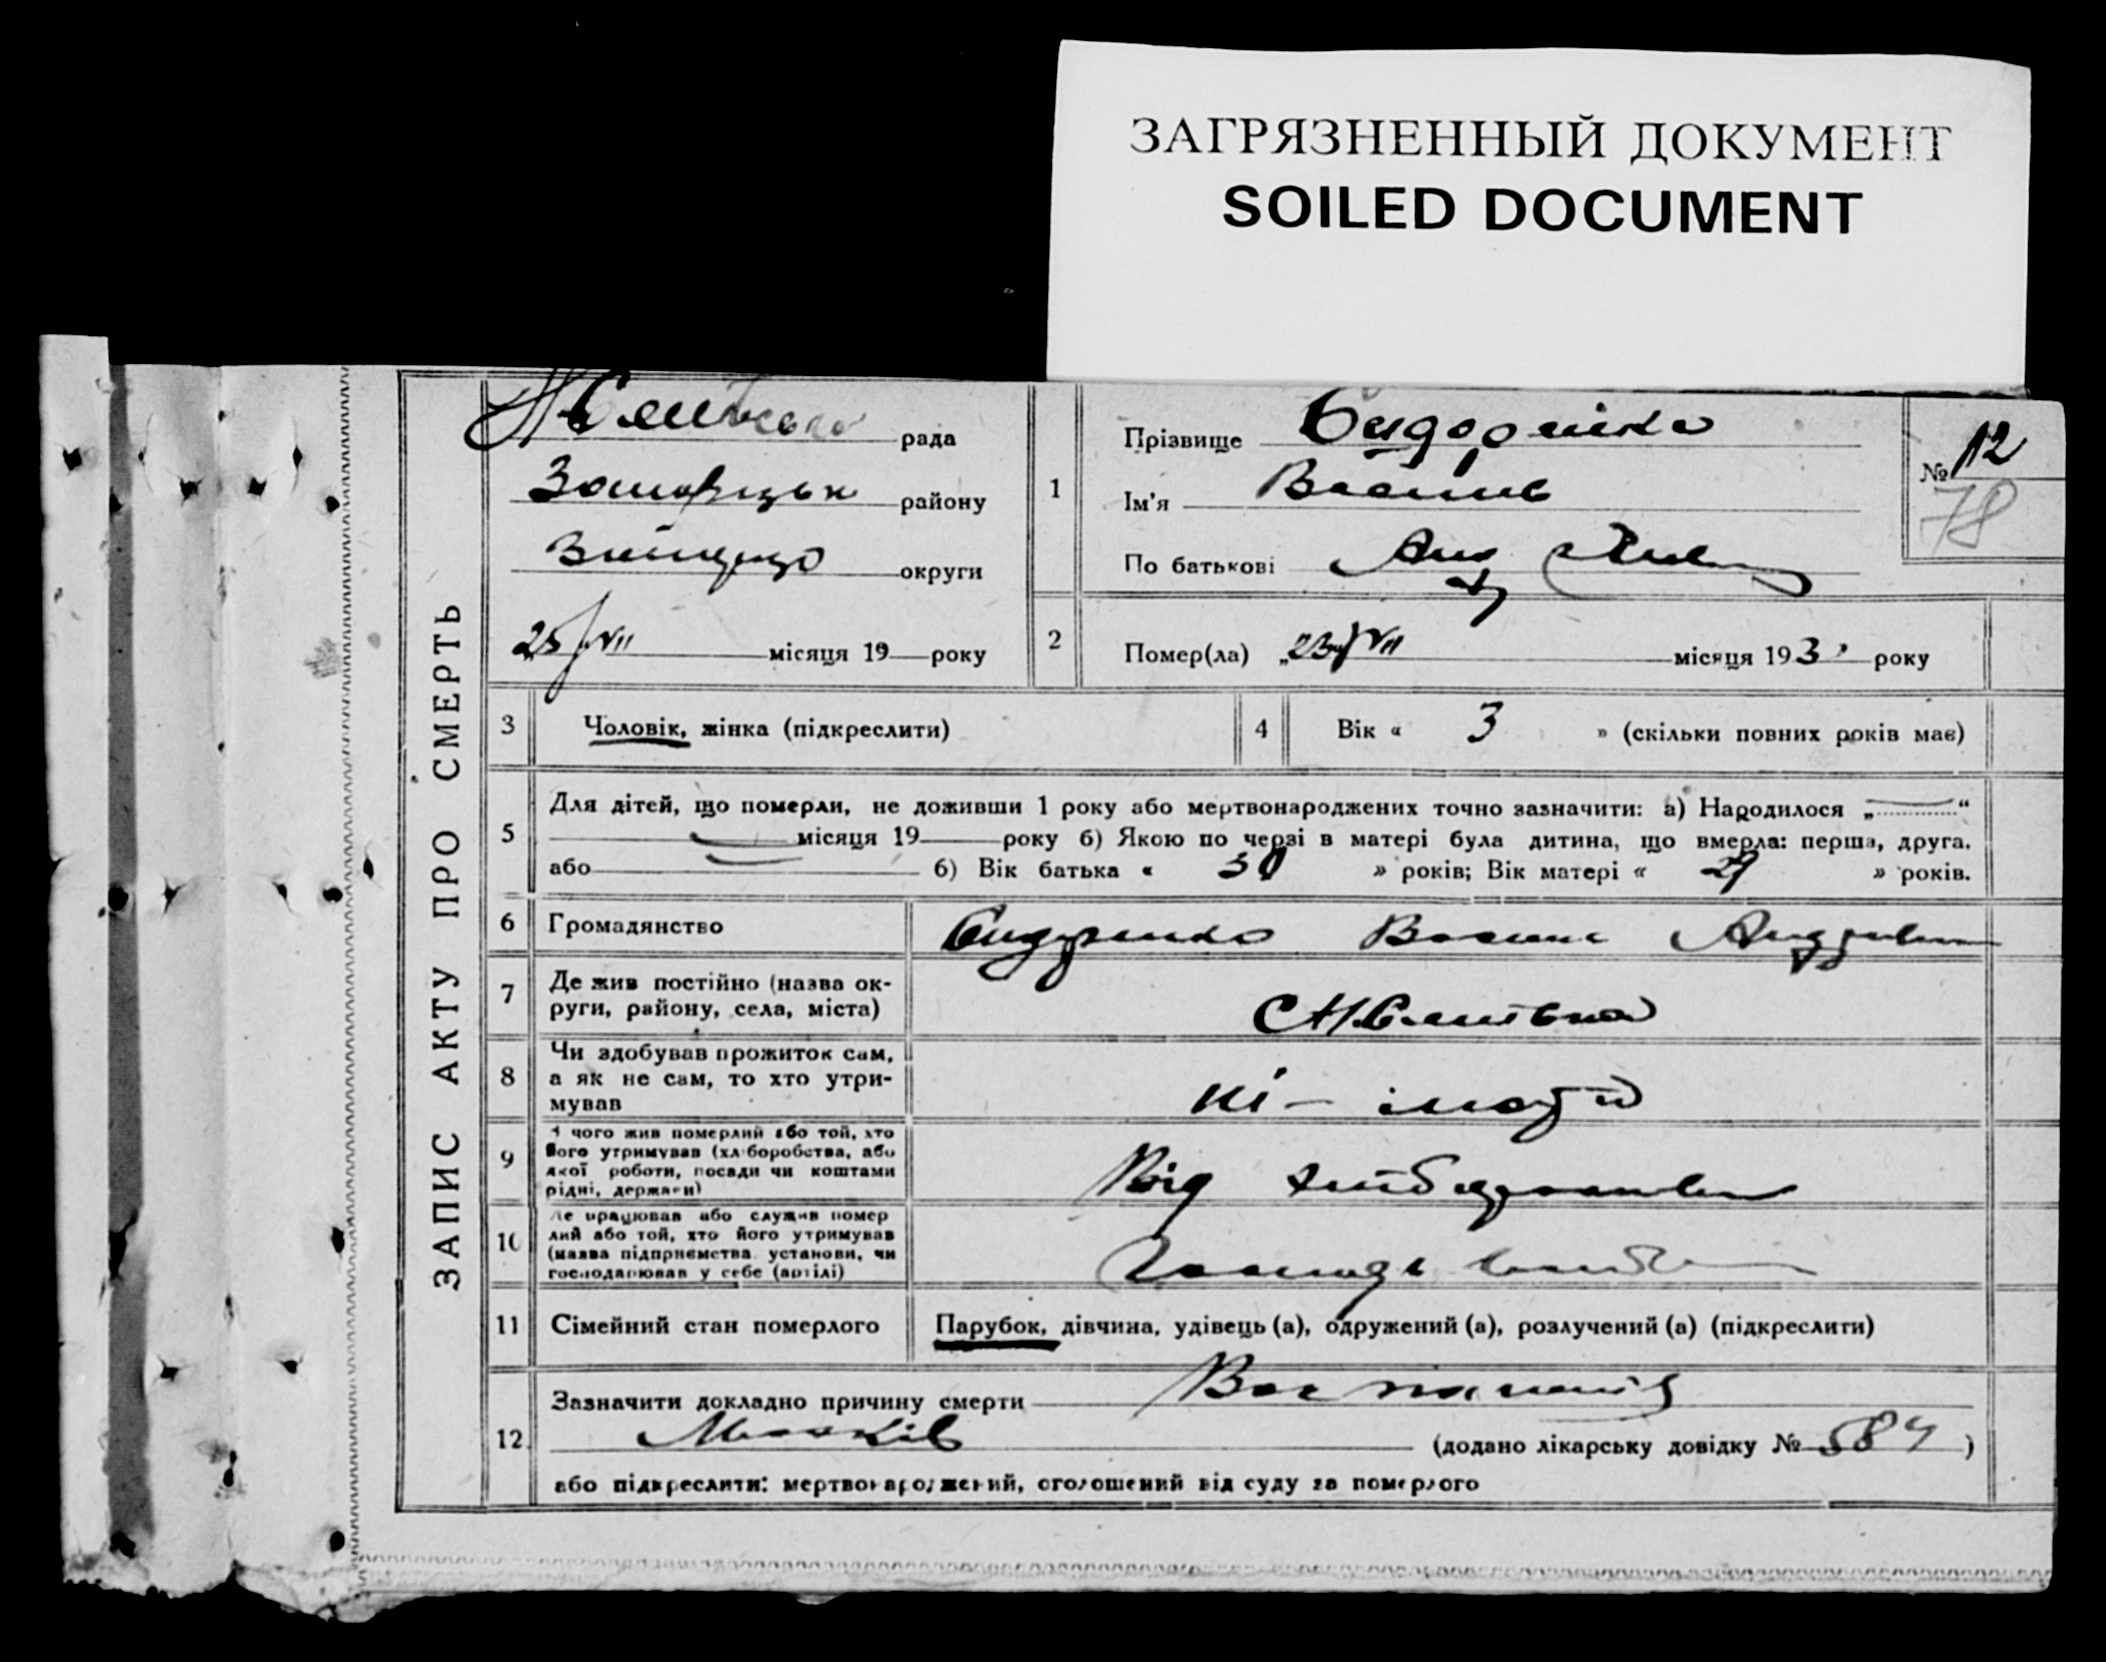 ЗАГРЯЗНЕННЫЙ ДОКУМЕНТ
SOILED DOCUMENT
ЗАПИС АКТУ ПРО СМЕРТЬ
рада
району
округи
25/VII місяця 19 року
1
Прізвище Сидоренко
Ім'я Василь
По батькові
№ 12
78
2
Помер(ла) „23/VII місяця 193 року
3 Чоловік, жінка (підкреслити)
4 Вік « 3 » (скільки повних років має)
5 Для дітей, що померли, не доживши 1 року або мертвонароджених точно зазначити: а) Народилося „ “
місяця 19 року б) Якою по черзі в матері була дитина, що вмерла: перша, друга,
або б) Вік батька « 30 » років; Вік матері « 29 » років.
6 Громадянство Сидоренко Василь
7 Де жив постійно (назва ок-
руги, району, села, міста)
8 Чи здобував прожиток сам,
а як не сам, то хто утри-
мував
ні –
9 З чого жив померлий або той, хто
його утримував (хліборобства, або
якої роботи, посади чи коштами
рідні, держави)
Від
10 Де працював або служив помер
лий або той, хто його утримував
(назва підприємства установи, чи
господарював у себе (артілі)
11 Сімейний стан померлого
Парубок, дівчина, удівець (а), одружений (а), розлучений (а) (підкреслити)
12 Зазначити докладно причину смерти
(додано лікарську довідку № 584 )
або підкреслити: мертвонароджений, оголошений від суду за померлого